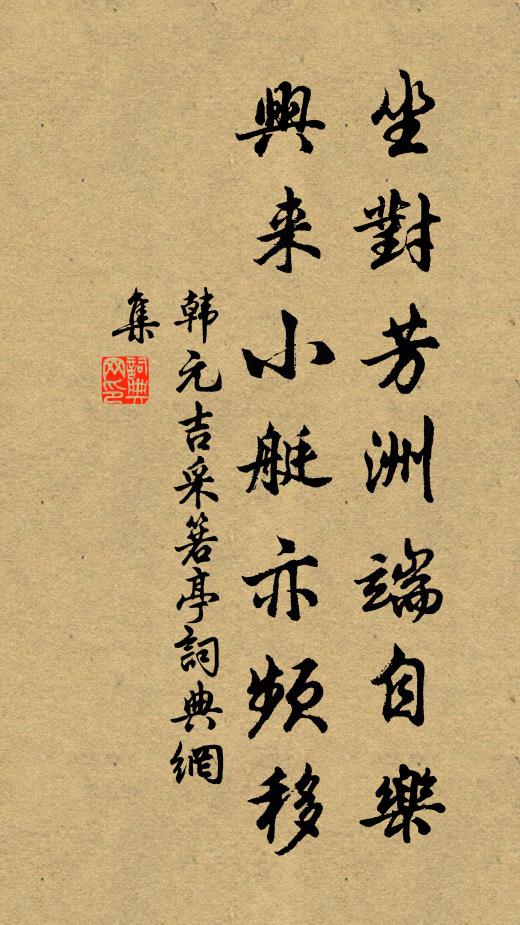 坐對芳洲端自樂
興来小艇亦頻移
韩元吉采箬亭詞典網
集
詞典网印